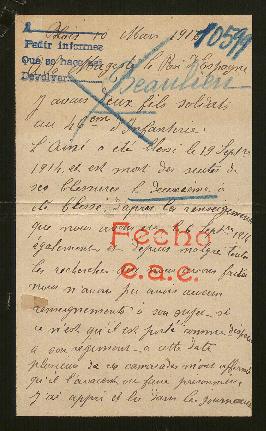 10 Mars 191
10599
Pedir informes
Que se haga
Devolver
d'Espagne
Beaulieu
J'avais deux fils soldats
au 46ème d'Infanterie.
L'Ainé a été blessé le 19 Sept
1914, et est mort des suites de
ses blessures le deuxième a
été blessé, d'après les renseignements
que nous avons eus le 6 Sept 1914
également et depuis malgré toutes
les recherches que nous avons faites
nous n'avons pu avoir aucun
renseignements à son sujet - si
ce n'est qu'il est porté comme disparu
à son régiment - à cette date
plusieurs de ces camarades m'ont affirmé
qu'il l'avaient vu faire prisonnier
J'ai appris et lu dans les journaux
Fecho
e.a.c.